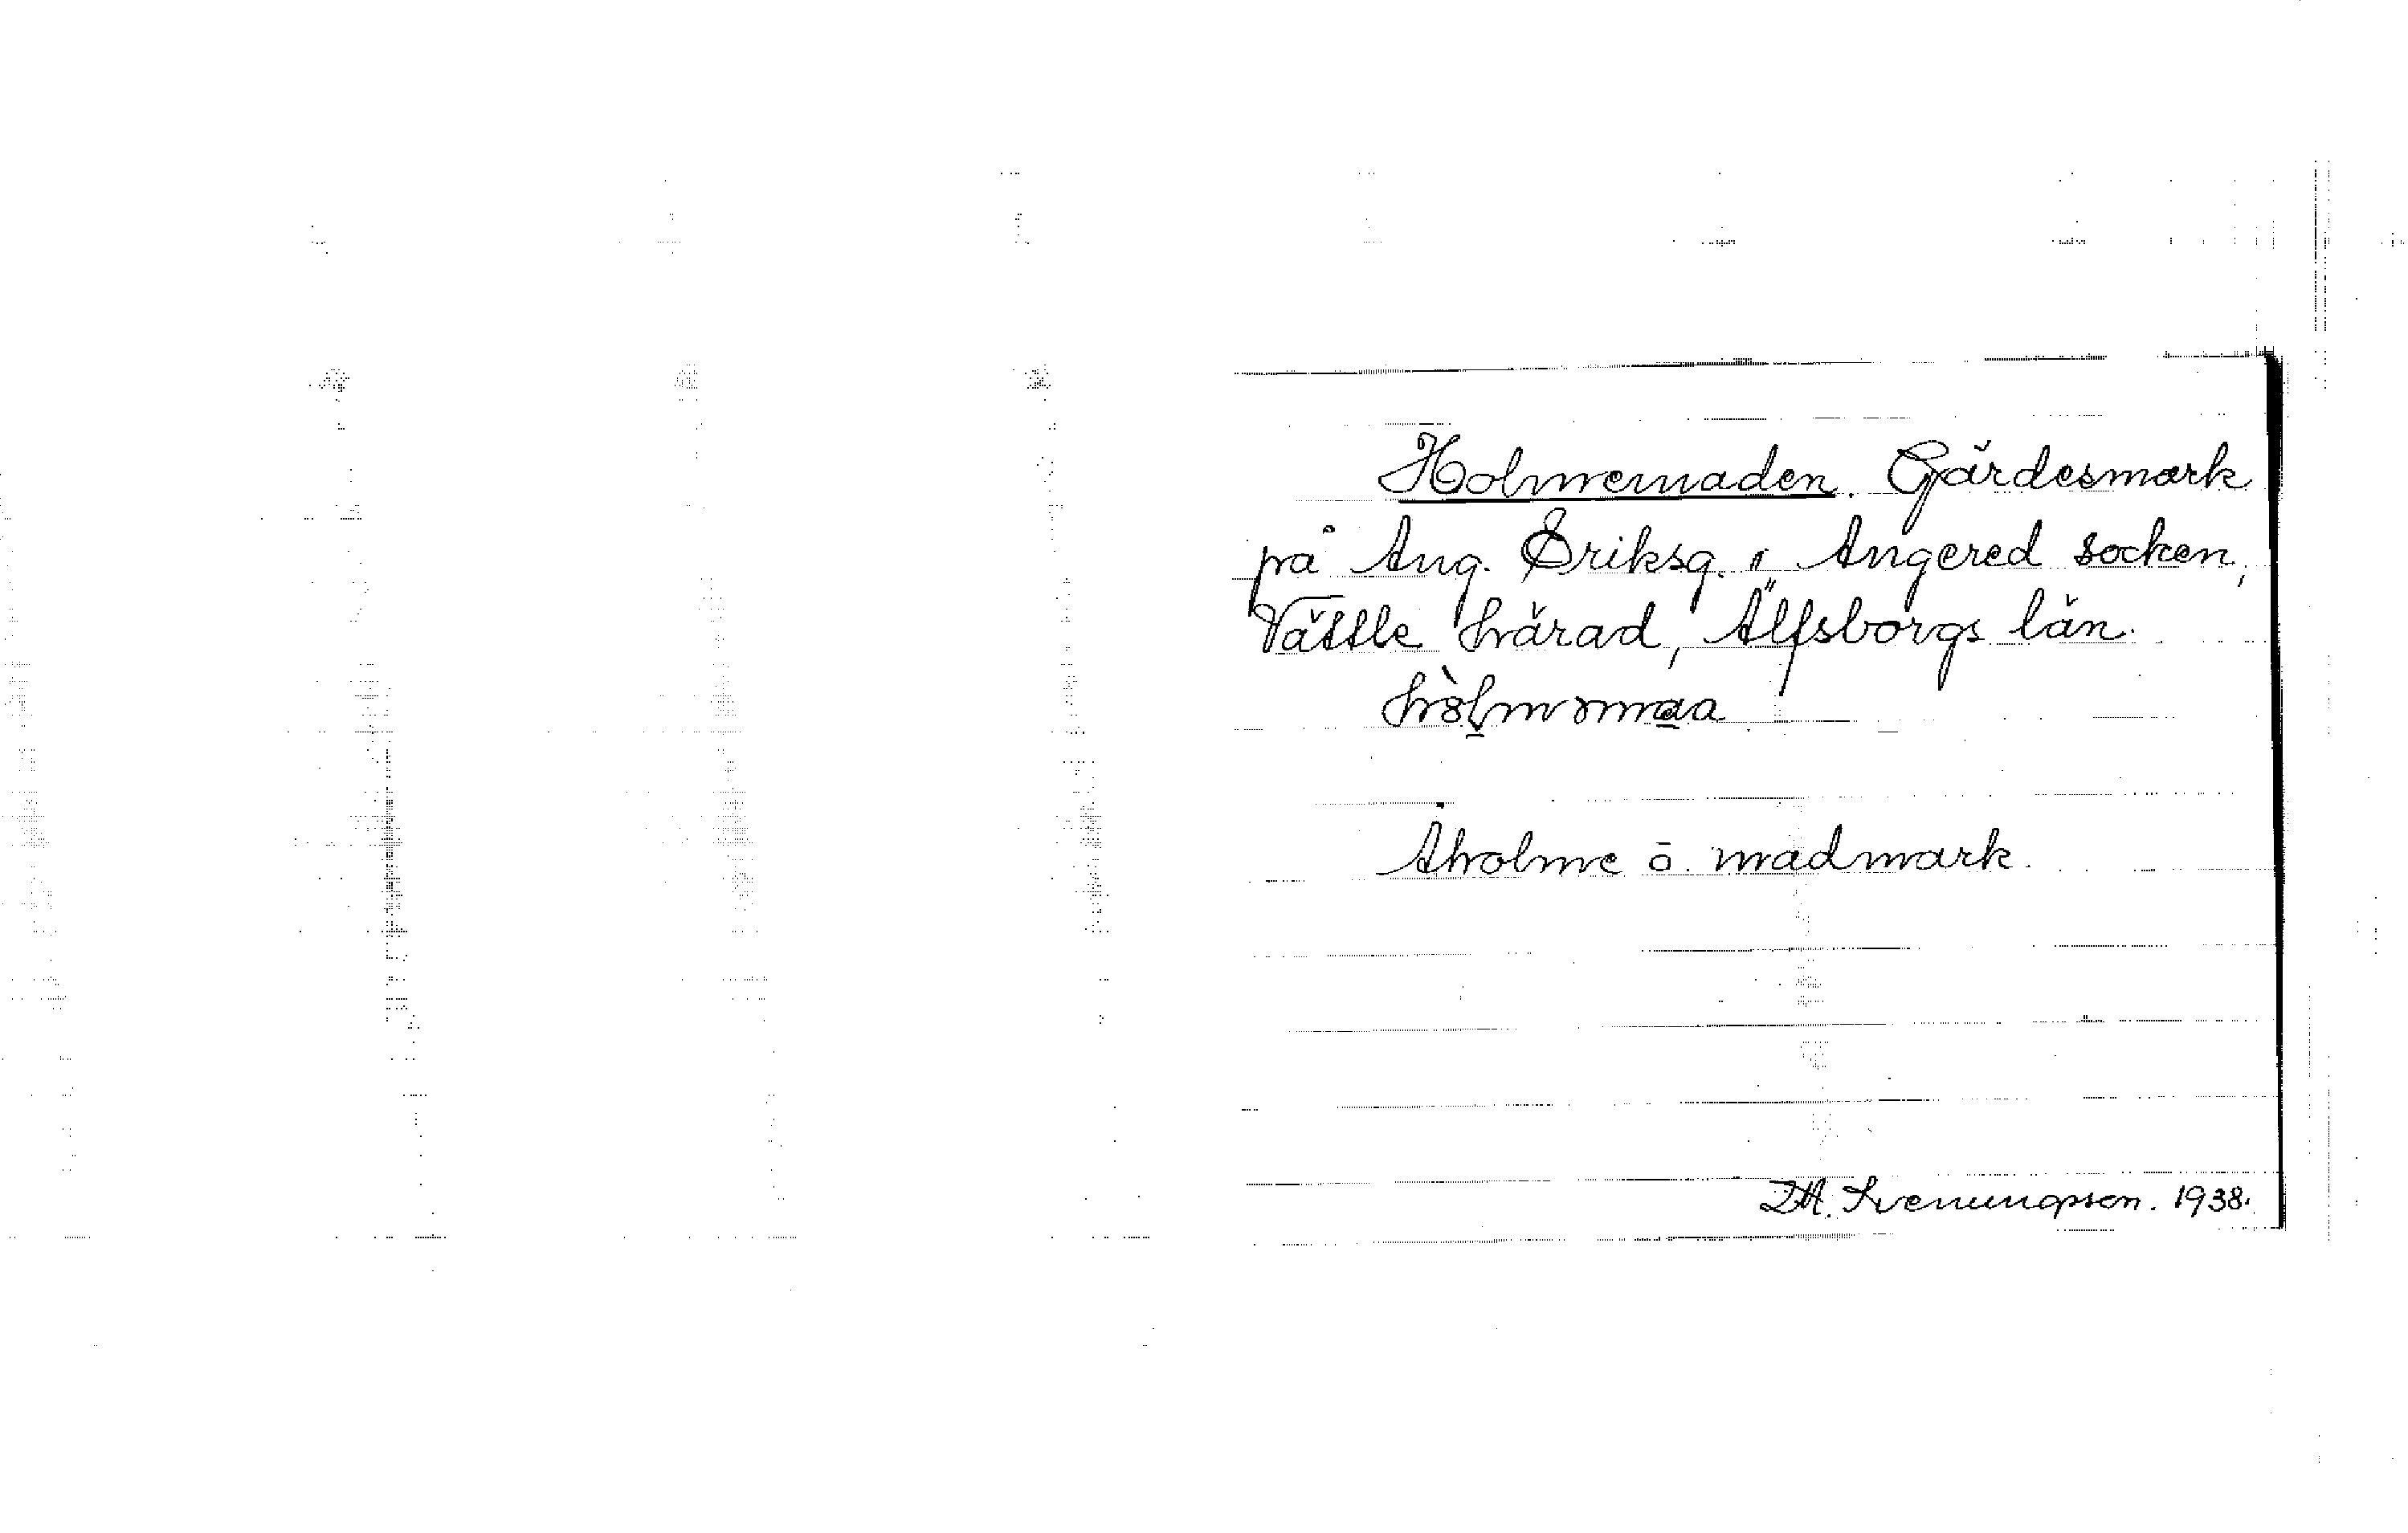 Holmemaden. Gärdesmark
på Ang. Eriksg. i Angered socken,
Vättle härad, Älfsborgs län.
Åholme o. madmark.
Svenungsson. 1938.